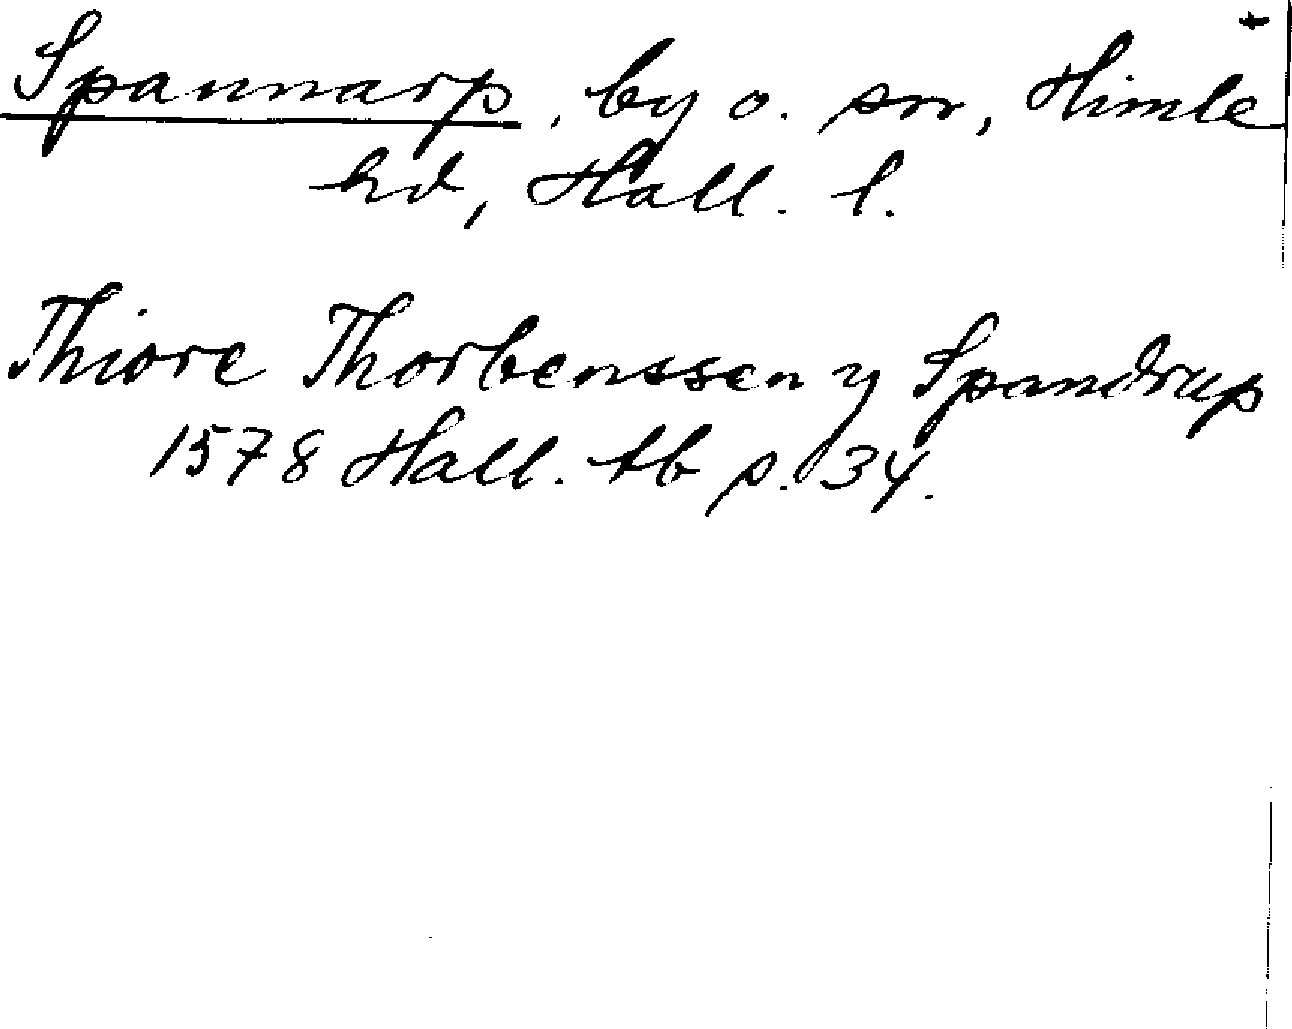 Spannarp, by o. sn, Himle
hd, Hall. l.
Thiore Thorbenssen y Spandrup
1578 Hall. tb s. 34.